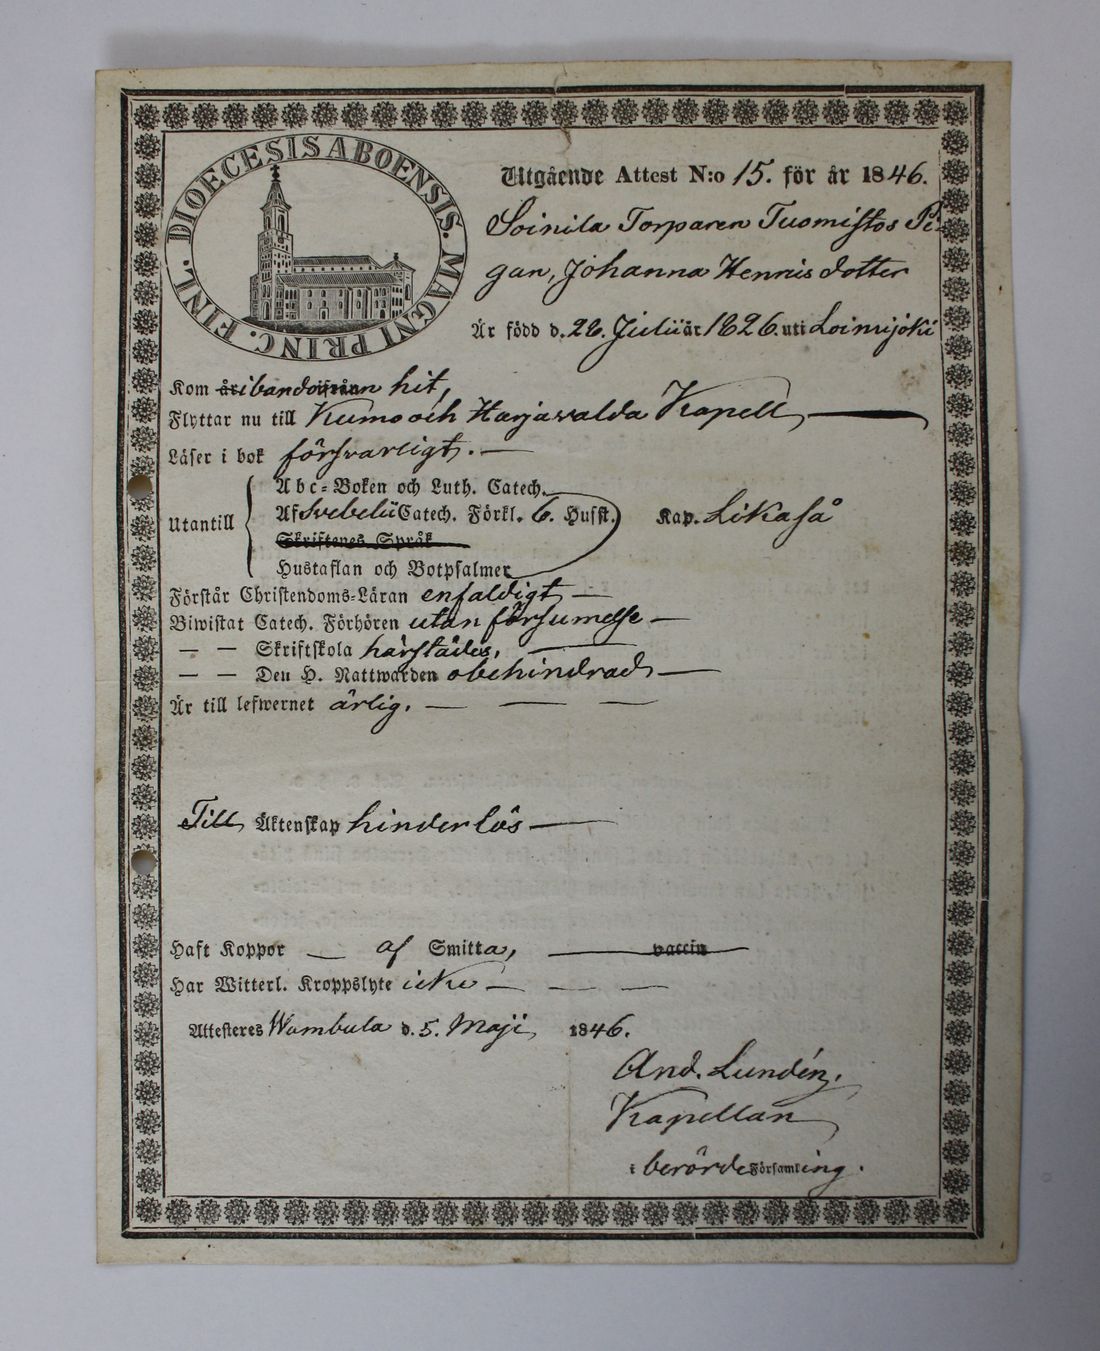 DIOECESIS ABOENSIS. MAGNI PRINC. FINL.
Utgående Attest N:o 15. för år 1846.
Soinila Torparen Tuomistos Pi-
gan, Johanna Henricsdotter
Är född d. 28. Julii år 1826. uti Loimijoki
Kom år i barndomen hit,
Flyttar nu till Kumo och Harjavalda Kapell
Läser i bok försvarligt.
Utantill
Abc-Boken och Luth. Catech.
Af Svebelii Catech. Förkl. 6. Husst. Kap. Likaså
Skriftenes Språk
Hustaflan och Botpsalmer
Förstår Christendoms-Läran enfaldigt
Biwistat Catech. Förhören utan försumelse
— — Skriftskola härstädes,
— — Den H. Nattwarden obehindrad
Är till lefwernet ärlig.
Till Äktenskap hinderlös
Haft Koppor — af Smitta, vaccin
Har Witterl. Kroppslyte icke
Attesteres Wambula d. 5. Maji 1846.
And. Lundén,
Kapellan
i berörde Församling.